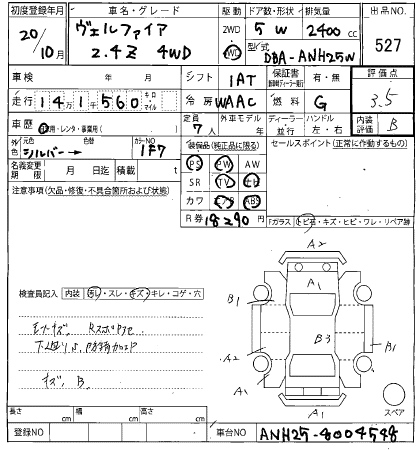 初度登録年月 車名・グレード 駆動 ドア数・形状 排気量 出品NO.
20/10月 ヴェルファイア 2.4Z 4WD 2WD 4WD 5W 2400cc 527
型式 DBA-ANH25W
車検 年 月 シフト IAT 保証書 有・無 評価点
走行 141千560 キロ・マイル 冷房 WAAC 燃料 G 3.5
車歴 自用・レンタ・事業用( ) 定員 7人 外車モデル 年 ディーラー・並行 ハンドル 左・右 内装評価 B
外色 元色 シルバー→ 色替 カラーNO 1F7 装備品(純正品に限る) セールスポイント(正常に作動するもの)
名義変更期限 月 日迄 積載 t PS PW AW
注意事項(欠品・修復・不具合箇所および状態) SR TV ナビ
カワ エアB ABS
R券 18290円 「ガラス」トビ石・キズ・ヒビ・ワレ・リペア跡
A2
A1
検査員記入 内装 汚レ・スレ・キズ・キレ・コゲ・穴 B1
B3 B1
A2
キズ、B
A1
A1 スペア
長さ cm 幅 cm 高さ cm
登録NO 車台NO ANH25-8004548